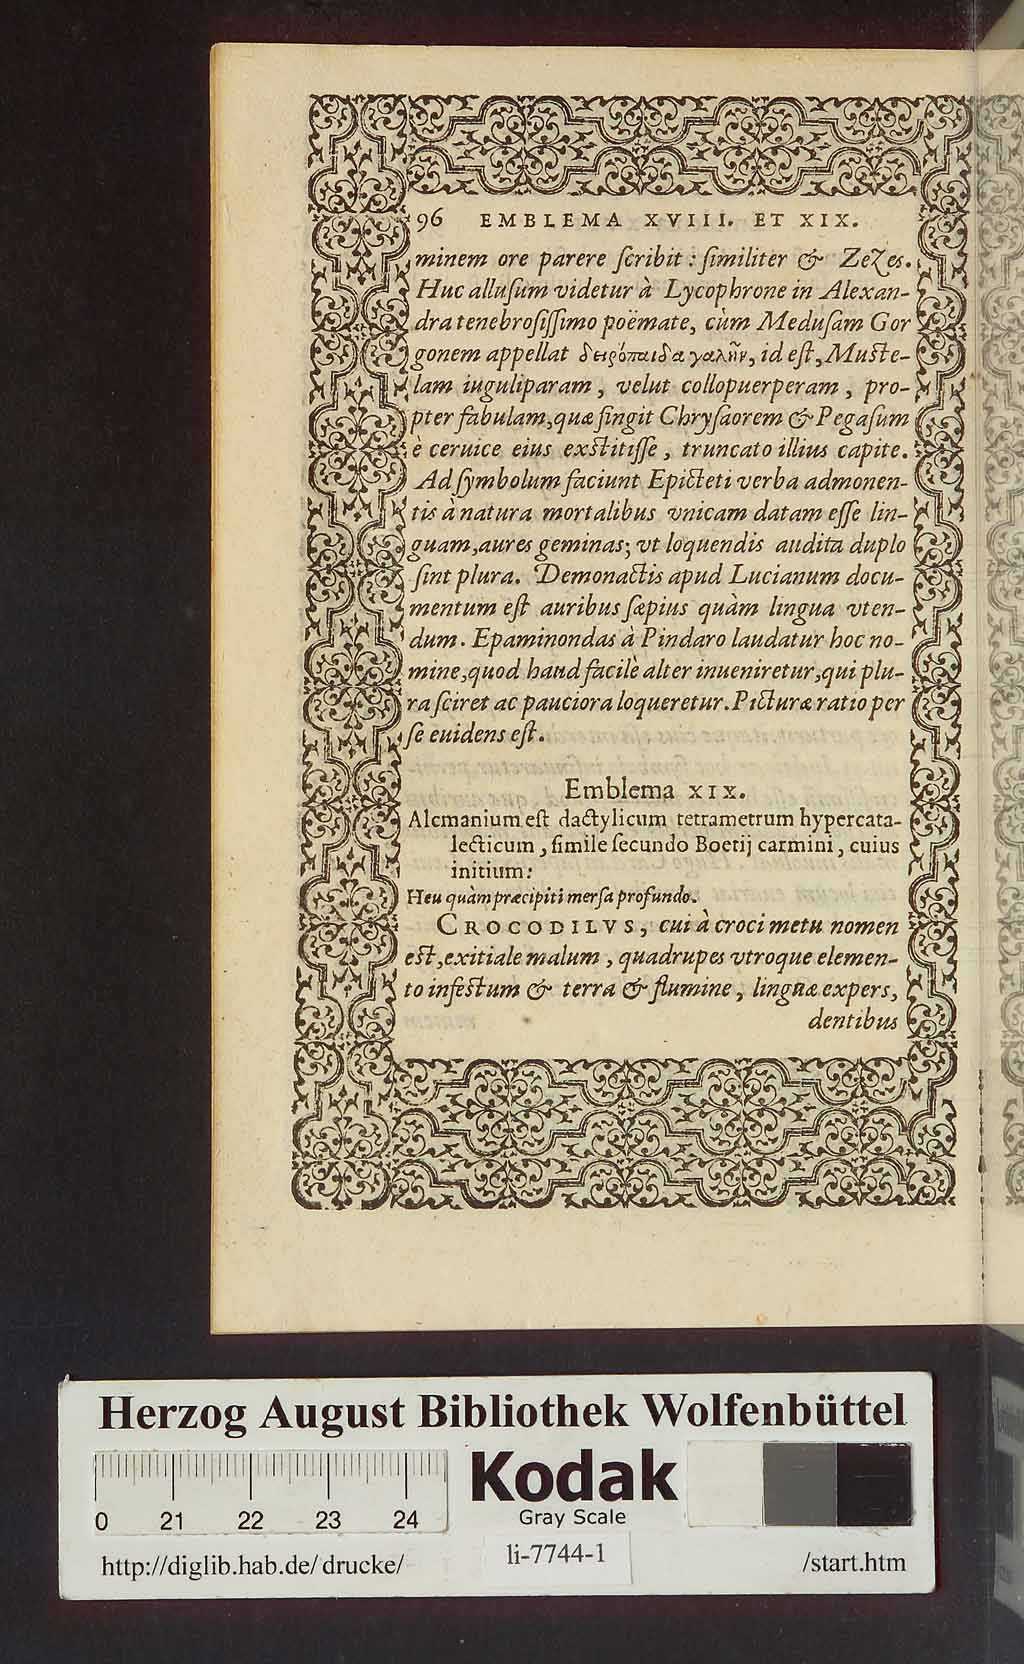 96 EMBLEMA XVIII. ET XIX.
minem ore parere ſcribit: ſimiliter & Zezes.
Huc alluſum videtur à Lycophrone in Alexan-
dra tenebroſiſſimo poëmate, cùm Meduſam Gor
gonem appellat δειρόπαιδα γαλῆν, id eſt, Muſte-
lam iuguliparam, velut collopuerperam, pro-
pter fabulam, quæ fingit Chryſaorem & Pegaſum
è ceruice eius exſtitiſſe, truncato illius capite.
Ad ſymbolum faciunt Epicteti verba admonen-
tis à natura mortalibus vnicam datam eſſe lin-
guam, aures geminas; vt loquendis audita duplo
ſint plura. Demonactis apud Lucianum docu-
mentum eſt auribus ſæpius quàm lingua vten-
dum. Epaminondas à Pindaro laudatur hoc no-
mine, quod haud facilè alter inueniretur, qui plu-
ra ſciret ac pauciora loqueretur. Picturæ ratio per
ſe euidens eſt.
Emblema XIX.
Alcmanium eſt dactylicum tetrametrum hypercata-
lecticum, ſimile ſecundo Boetij carmini, cuius
initium:
Heu quàm præcipiti merſa profundo.
CROCODILVS, cui à croci metu nomen
eſt, exitiale malum, quadrupes vtroque elemen-
to infeſtum & terra & flumine, linguæ expers,
dentibus
Herzog August Bibliothek Wolfenbüttel
Kodak
Gray Scale
0 21 22 23 24
http://diglib.hab.de/drucke/ li-7744-1 /start.htm